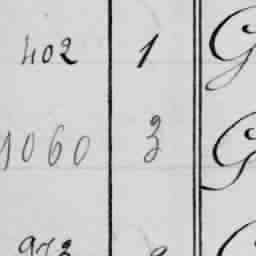 402 1 G
1060 3 G